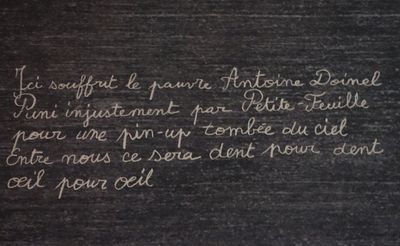 Ici souffrit le pauvre Antoine Doinel
Puni injustement par Petite-Feuille
pour une pin-up tombée du ciel
Entre nous ce sera dent pour dent
œil pour œil